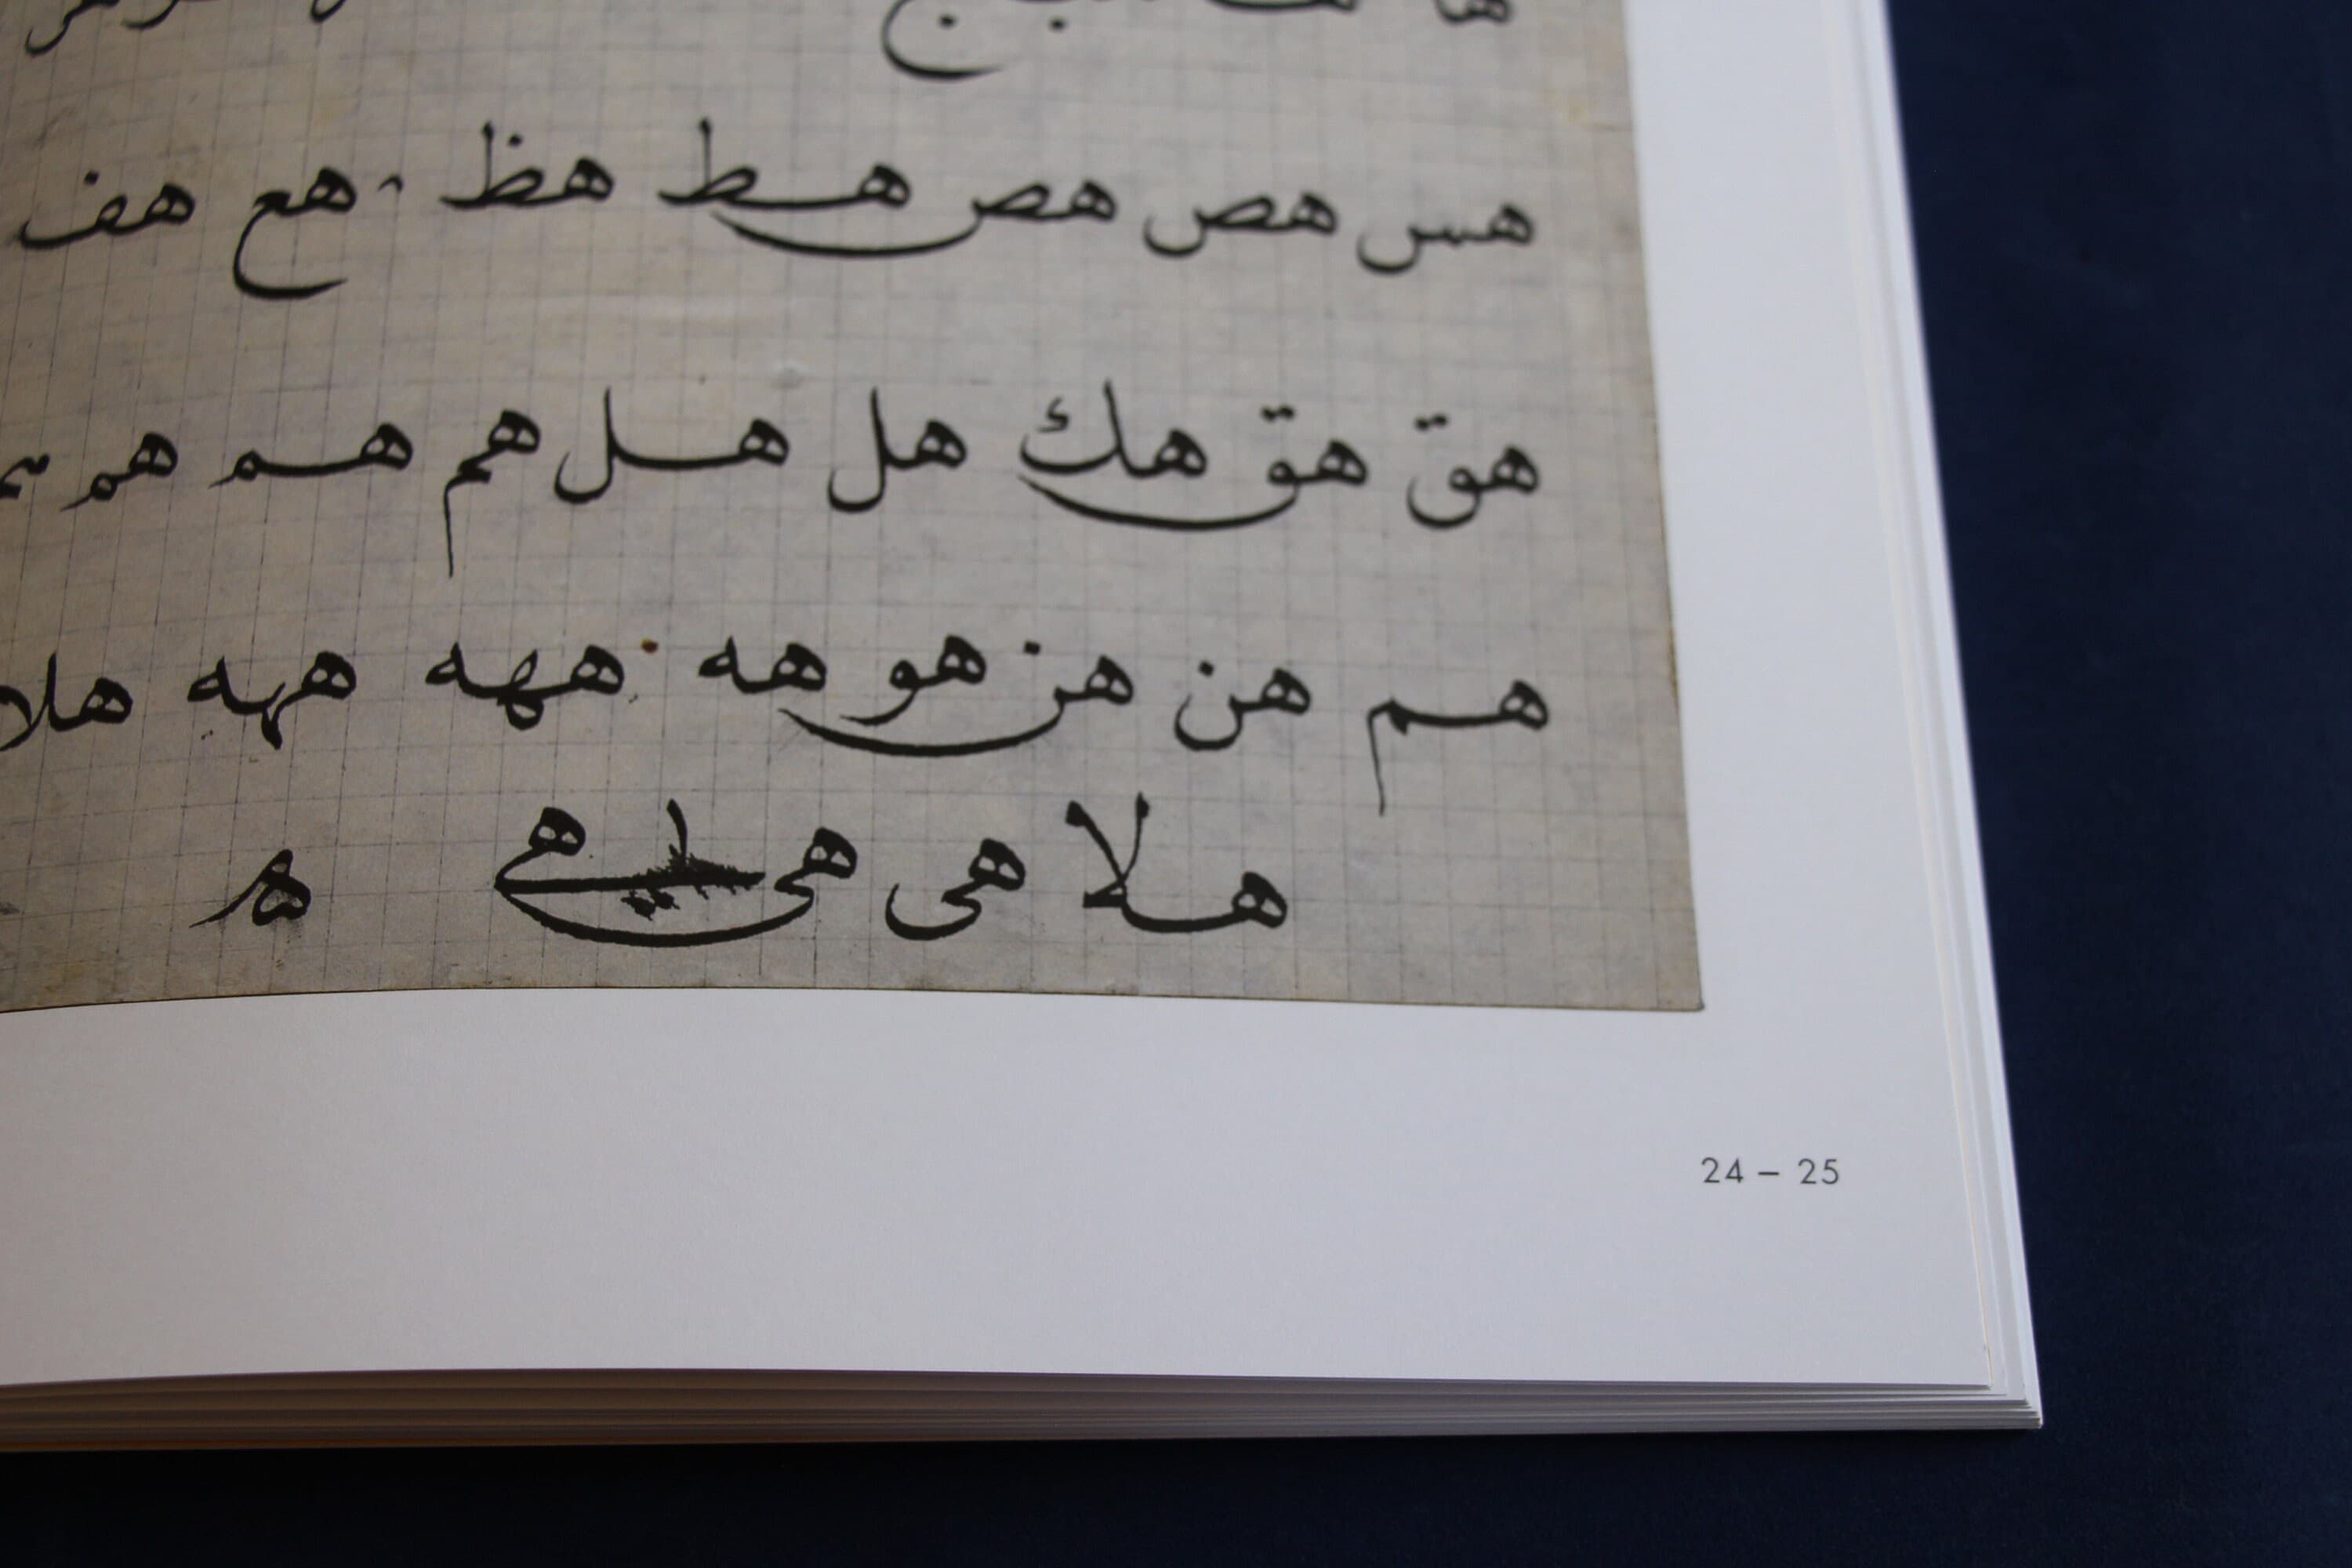 هس هص هص هط هظ هع هف
هق هق هك هل هل هم هم هم
هم هن هن هو هه ههه ههه هلا
هلا هى هى هى ه
24 – 25